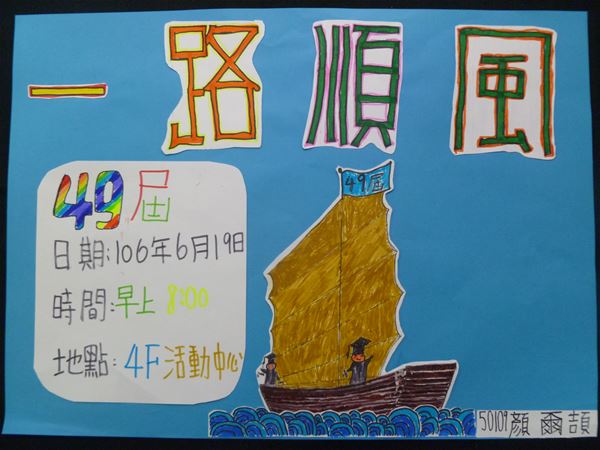 一路順風
49屆
日期:106年6月19日
時間:早上 8:00
地點:4F活動中心
49屆
50109顏爾頡